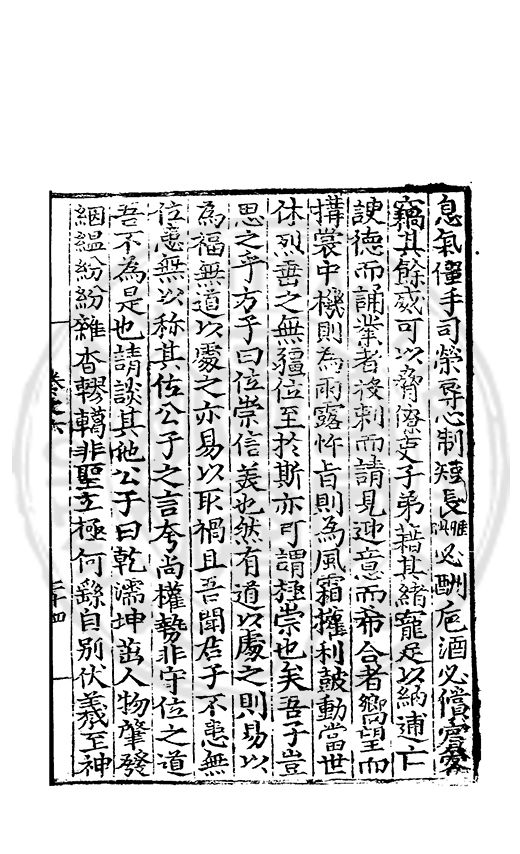 息氣僮手司榮辱心制短長雎必酬巵酒必償奮
竊其餘威可以脅僚吏子弟藉其緒寵足以納逋亡
諛德而誦業者投刺而請見迎意而希合者嚮望而
搆裳中機則為雨露忤旨則為風霜擁利鼓動當世
休烈垂之無疆位至於斯亦可謂極崇也矣吾子豈
思之乎方子曰位崇信美也然有道以處之則易以
為福無道以處之亦易以取禍且吾聞君子不患無
位患無以称其位公子之言夸尚權勢非守位之道
吾不為是也請談其他公子曰乾濡坤茁人物肇發
絪縕紛紛雜杳轇轕非聖立極何繇自別伏羲至神
卷之六
二十四